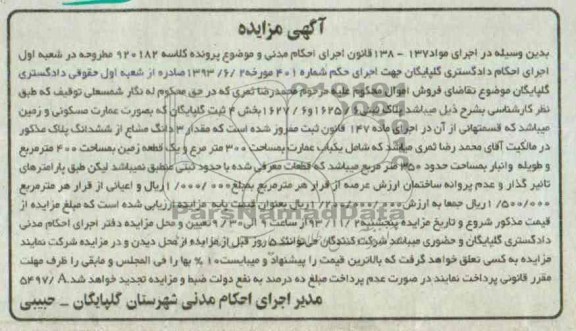 آگهی مزایده
بدین وسیله در اجرای مواد۱۳۷ - ۱۳۸قانون اجرای احکام مدنی و موضوع پرونده کلاسه ۹۲۰۱۸۲ مطروحه در شعبه اول
اجرای احکام دادگستری گلپایگان جهت اجرای حکم شماره ۴۰۱ مورخه۱۳۹۳/۶/۲صادره از شعبه اول حقوقی دادگستری
گلپایگان موضوع تقاضای فروش اموال محکوم علیه مرحوم محمدرضا ثمری که در حق محکوم له نگار شمسعلی توقیف که طبق
نظر کارشناسی بشرح ذیل میباشد.پلاک ثبتی ۱۶۲۵/۶و۱۶۲۷/۶بخش ۴ ثبت گلپایگان که بصورت عمارت مسکونی و زمین
میباشد که قسمتهایی از آن در اجرای ماده ۱۴۷ قانون ثبت مفروز شده است که مقدار ۳ دانگ مشاع از ششدانگ پلاک مذکور
در مالکیت آقای محمد رضا ثمری میباشد که شامل یکباب عمارت بمساحت ۳۰۰ متر مرع و یک قطعه زمین بمساحت ۴۰۰ مترمربع
و طویله وانبار بمساحت حدود ۳۵۰ متر مربع میباشد که قطعات معرفی شده با حدود ثبتی منطبق نمیباشد لیکن طبق پارامترهای
تاثیر گذار و عدم پروانه ساختمان ارزش عرصه از قرار هر مترمربع بمبلغ۱/۰۰۰/۰۰۰ریال و اعیانی از قرار هر مترمربع
۱/۵۰۰/۰۰۰ریال جمعا به ارزش ریال بعنوان قیمت پایه مزایده ارزیابی شده است که مبلغ مزایده از
قیمت مذکور شروع و تاریخ مزایده پنجشنبه۹۳/۱۱/۲از ساعت۹ الی۹/۳۰ تعیین و محل مزایده دفتر اجرای احکام مدنی
دادگستری گلپایگان و حضوری میباشد شرکت کنندگان می توانند۵ روز قبل از مزایده از محل دیدن و در مزایده شرکت نمایند
مزایده به کسی تعلق خواهد گرفت که بالاترین قیمت را پیشنهاد و میبایست۱۰ % بها را فی المجلس و مابقی را ظرف مهلت
مقرر قانونی پرداخت نمایند در صورت عدم پرداخت مبلغ ده درصد به نفع دولت ضبط و مزایده تجدید خواهد شد.۵۴۹۷/A
مدیر اجرای احکام مدنی شهرستان گلپایگان - حبیبی
ParsNamadData